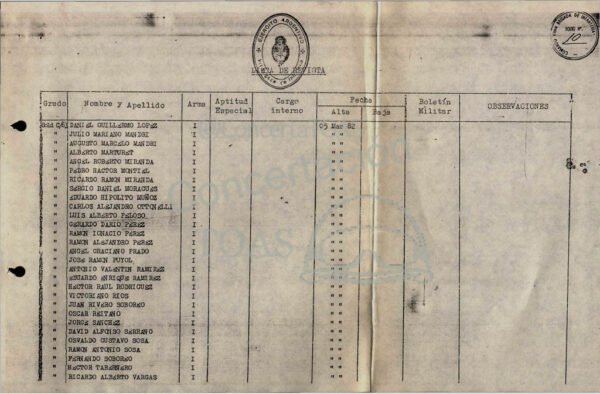 EJERCITO ARGENTINO
LISTA DE REVISTA
FOLIO Nº
10
Grado Nombre y Apellido Arma Aptitud Especial Cargo interno Fecha Alta Baja Boletín Militar OBSERVACIONES
DANIEL GUILLERMO LOPEZ I 05 Mar 82
" JULIO MARIANO MANDRI I " "
" AUGUSTO MARCELO MANDRI I " "
" ALBERTO MARTURET I " "
" ANGEL ROBERTO MIRANDA I " "
" PEDRO HACTOR MONTIEL I " "
" RICARDO RAMON MIRANDA I " "
" SERGIO DANIEL MORAGUES I " "
" EDUARDO HIPOLITO MUÑOZ I " "
" CARLOS ALEJANDRO OTTONELLI I " "
" LUIS ALBERTO PELOSO I " "
" GERARDO DARIO PEREZ I " "
" RAMON IGNACIO PEREZ I " "
" RAMON ALEJANDRO PEREZ I " "
" ANGEL GRACIANO PRADO I " "
" JOSE RAMON PUYOL I " "
" ANTONIO VALENTIN RAMIREZ I " "
" EDUARDO ENRIQUE RAMIREZ I " "
" HECTOR RAUL RODRIGUEZ I " "
" VICTORIANO RIOS I " "
" JUAN RIVERO SOBOREO I " "
" OSCAR REITANO I " "
" JORGE SANCHEZ I " "
" DAVID ALFONSO SERRANO I " "
" OSVALDO GUSTAVO SOSA I " "
" RAMON ANTONIO SOSA I " "
" FERNANDO SOBOREO I " "
" HECTOR TABERNERO I " "
" RICARDO ALBERTO VARGAS I " "